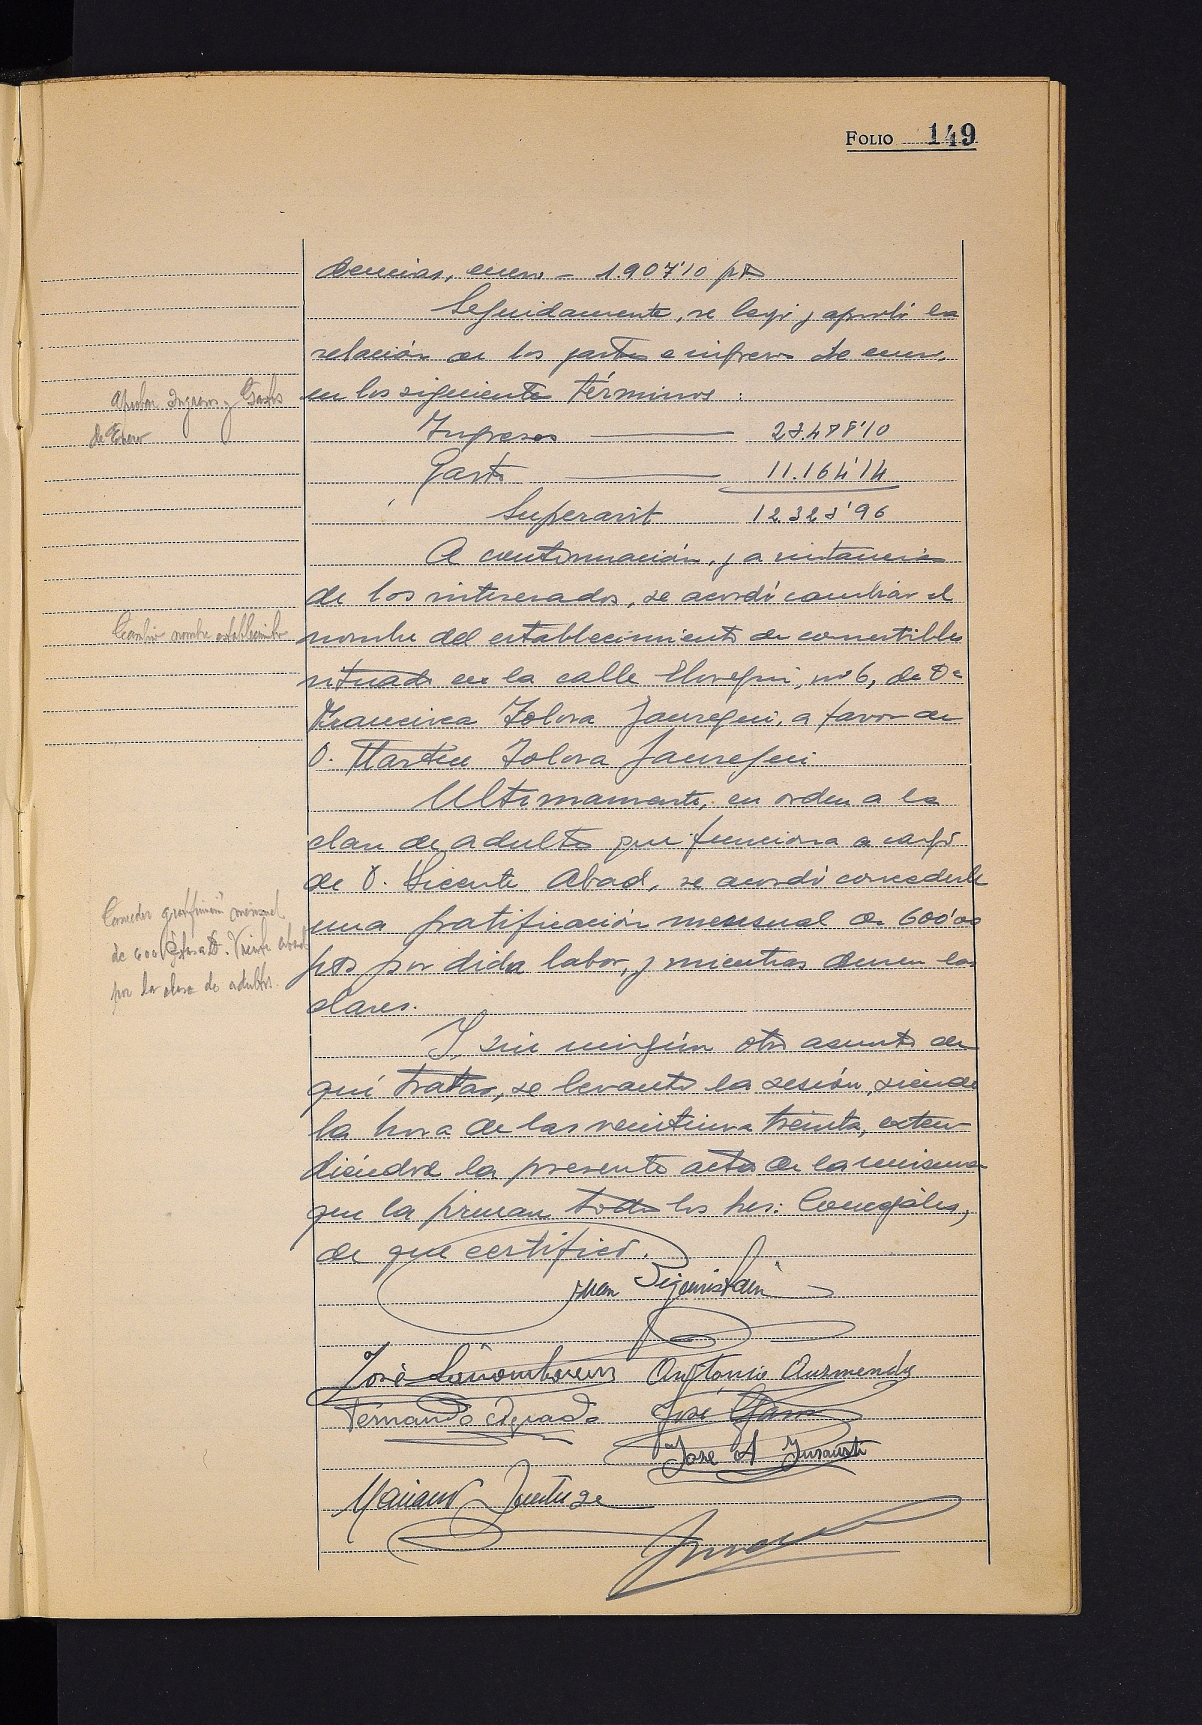 FOLIO 149
dencias, enero - 1.907'10 pts
Seguidamente, se leyó y aprobó la
relación de los gastos e ingresos de enero,
en los siguientes términos :
Aprobar Ingresos y Gastos
de Enero
Ingresos 23.488'10
Gastos 11.164'14
Superavit 12.323'96
A continuación, y a instancia
de los interesados, se acordó cambiar el
nombre del establecimiento de comestibles
Cambio nombre establecimiento
situado en la calle Eloregui, nº 6, de Dª
Francisca Tolosa Jauregui, a favor de
D. Martin Tolosa Jauregui
Ultimamente, en orden a la
clase de adultos que funciona a cargo
de D. Vicente Abad, se acordó concederle
una gratificación mensual de 600'00
pts por dicha labor, y mientras duren las
clases.
Conceder gratificación mensual
de 600 Ptas a D. Vicente Abad
por la clase de adultos.
Y, sin ningún otro asunto de
qué tratar, se levantó la sesión, siendo
la hora de las veintiuna treinta, exten-
diéndose la presente acta de la misma
que la firman todos los Sres. Concejales,
de que certifico.
Juan
José Antonio Aurmendi
Fernando José
Jose A Insausti
Mariano